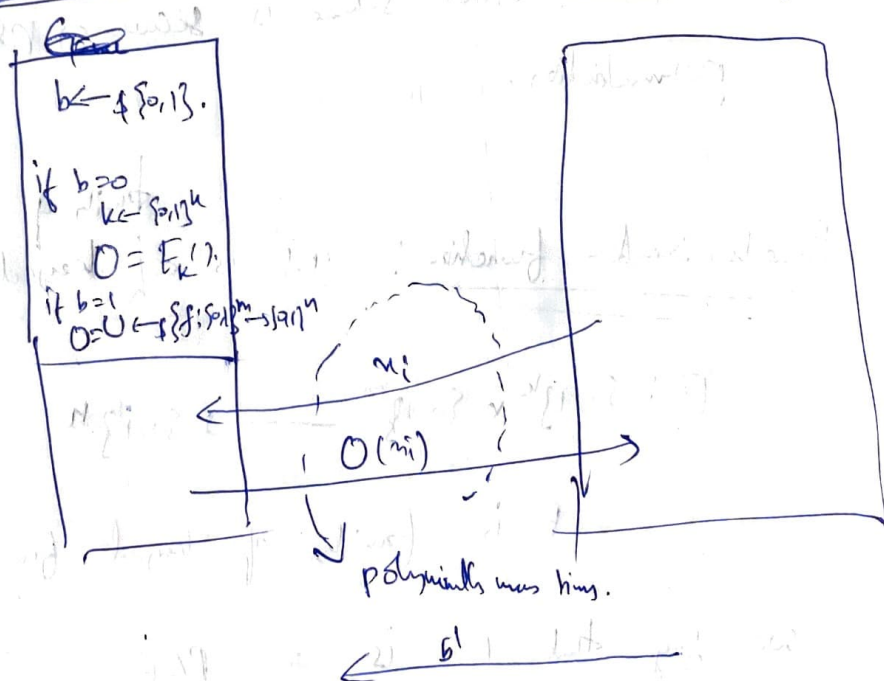 b ←$ {0,1}.
if b=0
k ← {0,1}^k
O = E_k().
if b=1
O=U ←$ {f: {0,1}^m → {0,1}^n
x_i
O(x_i)
polynomially many times.
b'